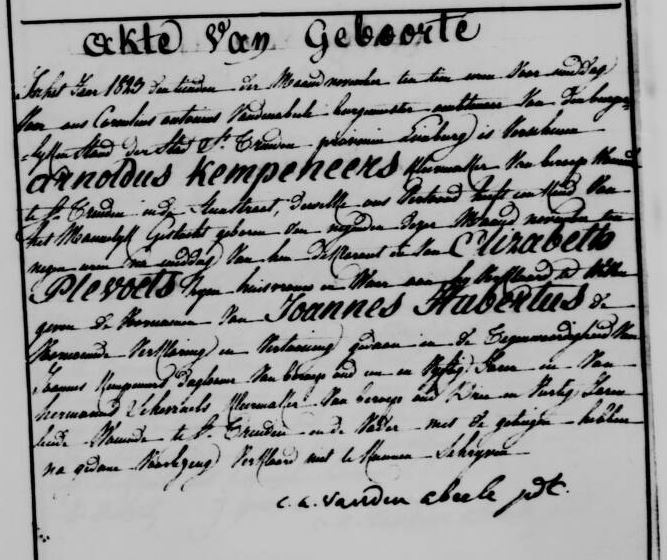 akte Van Geboorte
In het Jaar 1823 den tienden der Maand november ten tien uren Voor middag
Voor ons Cornelius antonius Vandenabeele burgemeester ambtenaer Van den burger-
-lyken Stand der Stad St. Truiden provincie Limburg is Verschenen
arnoldus Kempeneers Kleermaker Van beroep Woonende
te St. Truiden in de straet, dewelke ons Vertoond heeft een Kind Van
het Mannelyk Geslacht geboren den negenden dezer Maand november ten
negen uren na middag Van hem declarant en Van Elizabeth
Plevoets zyne huisvrouw en Waer aen hy Verklaard te Willen
geven de Voornamen Van Joannes Hubertus de
Voornoemde Verklaring en Vertooning gedaen in de Tegenwoordigheid Van
Joannes Kempeneers Daglooner Van beroep oud een en Vyftig Jaren en Van
hermanus Kleermaker Van beroep oud Drie en Veertig Jaren
beide Woonende te St. Truiden en de Vader met de getuigen hebben
na gedane Voorlezing Verklaard niet te Kunnen Schryven
C. A. Vanden abeele